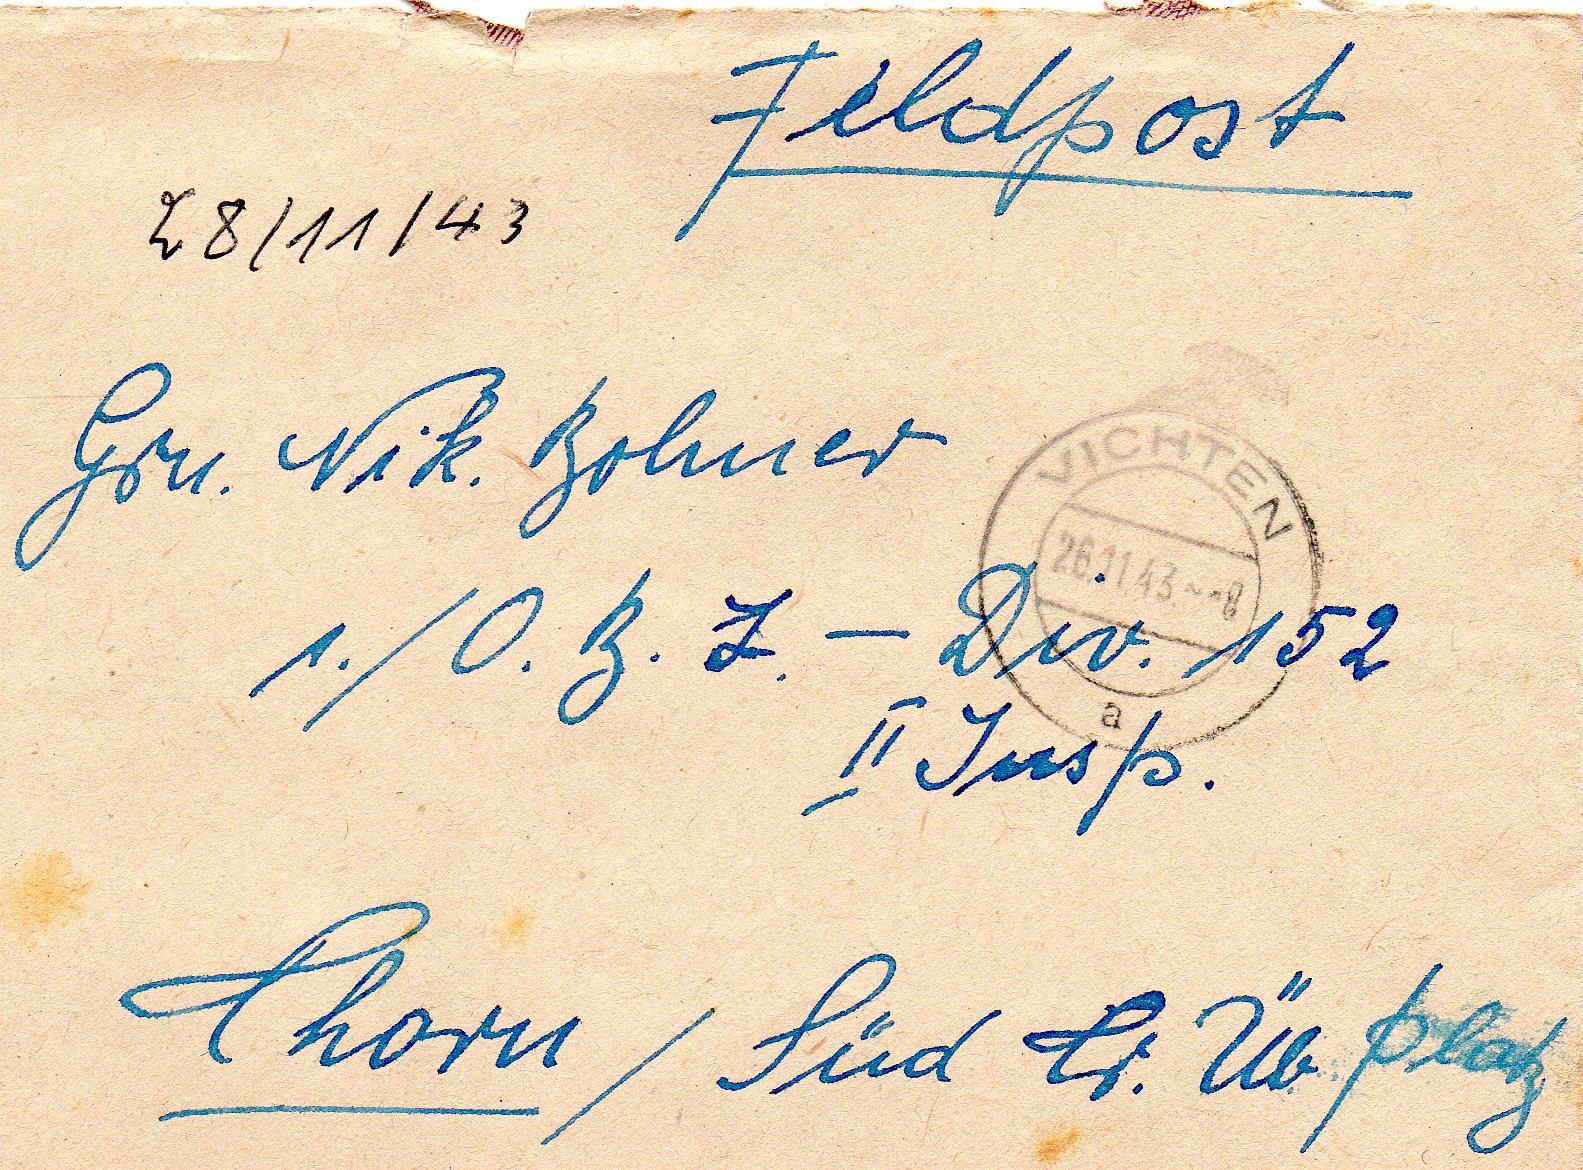 Feldpost
28/11/43
Gren. Nik. Bohmer
VICHTEN
26.11.43.--8
a
1./O. B. Z. - Div. 152
II Insp.
Thorn / Süd Tr. Üb platz